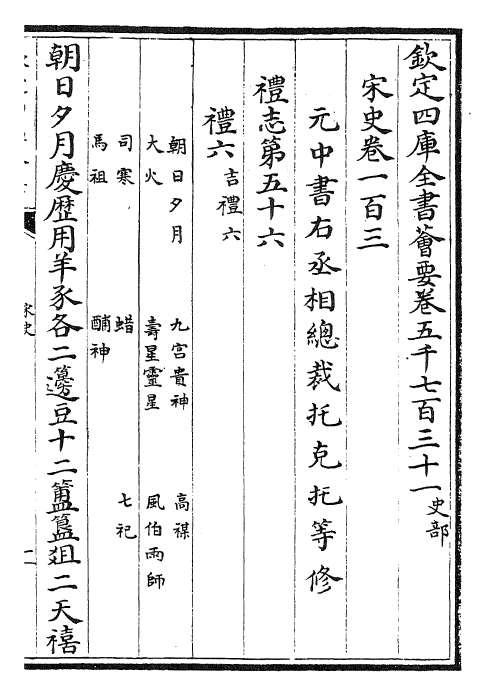 欽定四庫全書薈要卷五千七百三十一史部
宋史卷一百三
元中書右丞相總裁托克托等修
禮志第五十六
禮六吉禮六
朝日夕月 九宫貴神 高禖
大火 壽星靈星 風伯雨師
司寒 蜡 七祀
馬祖 酺神
朝日夕月慶歴用羊豕各二籩豆十二簠簋俎二天禧
宋史